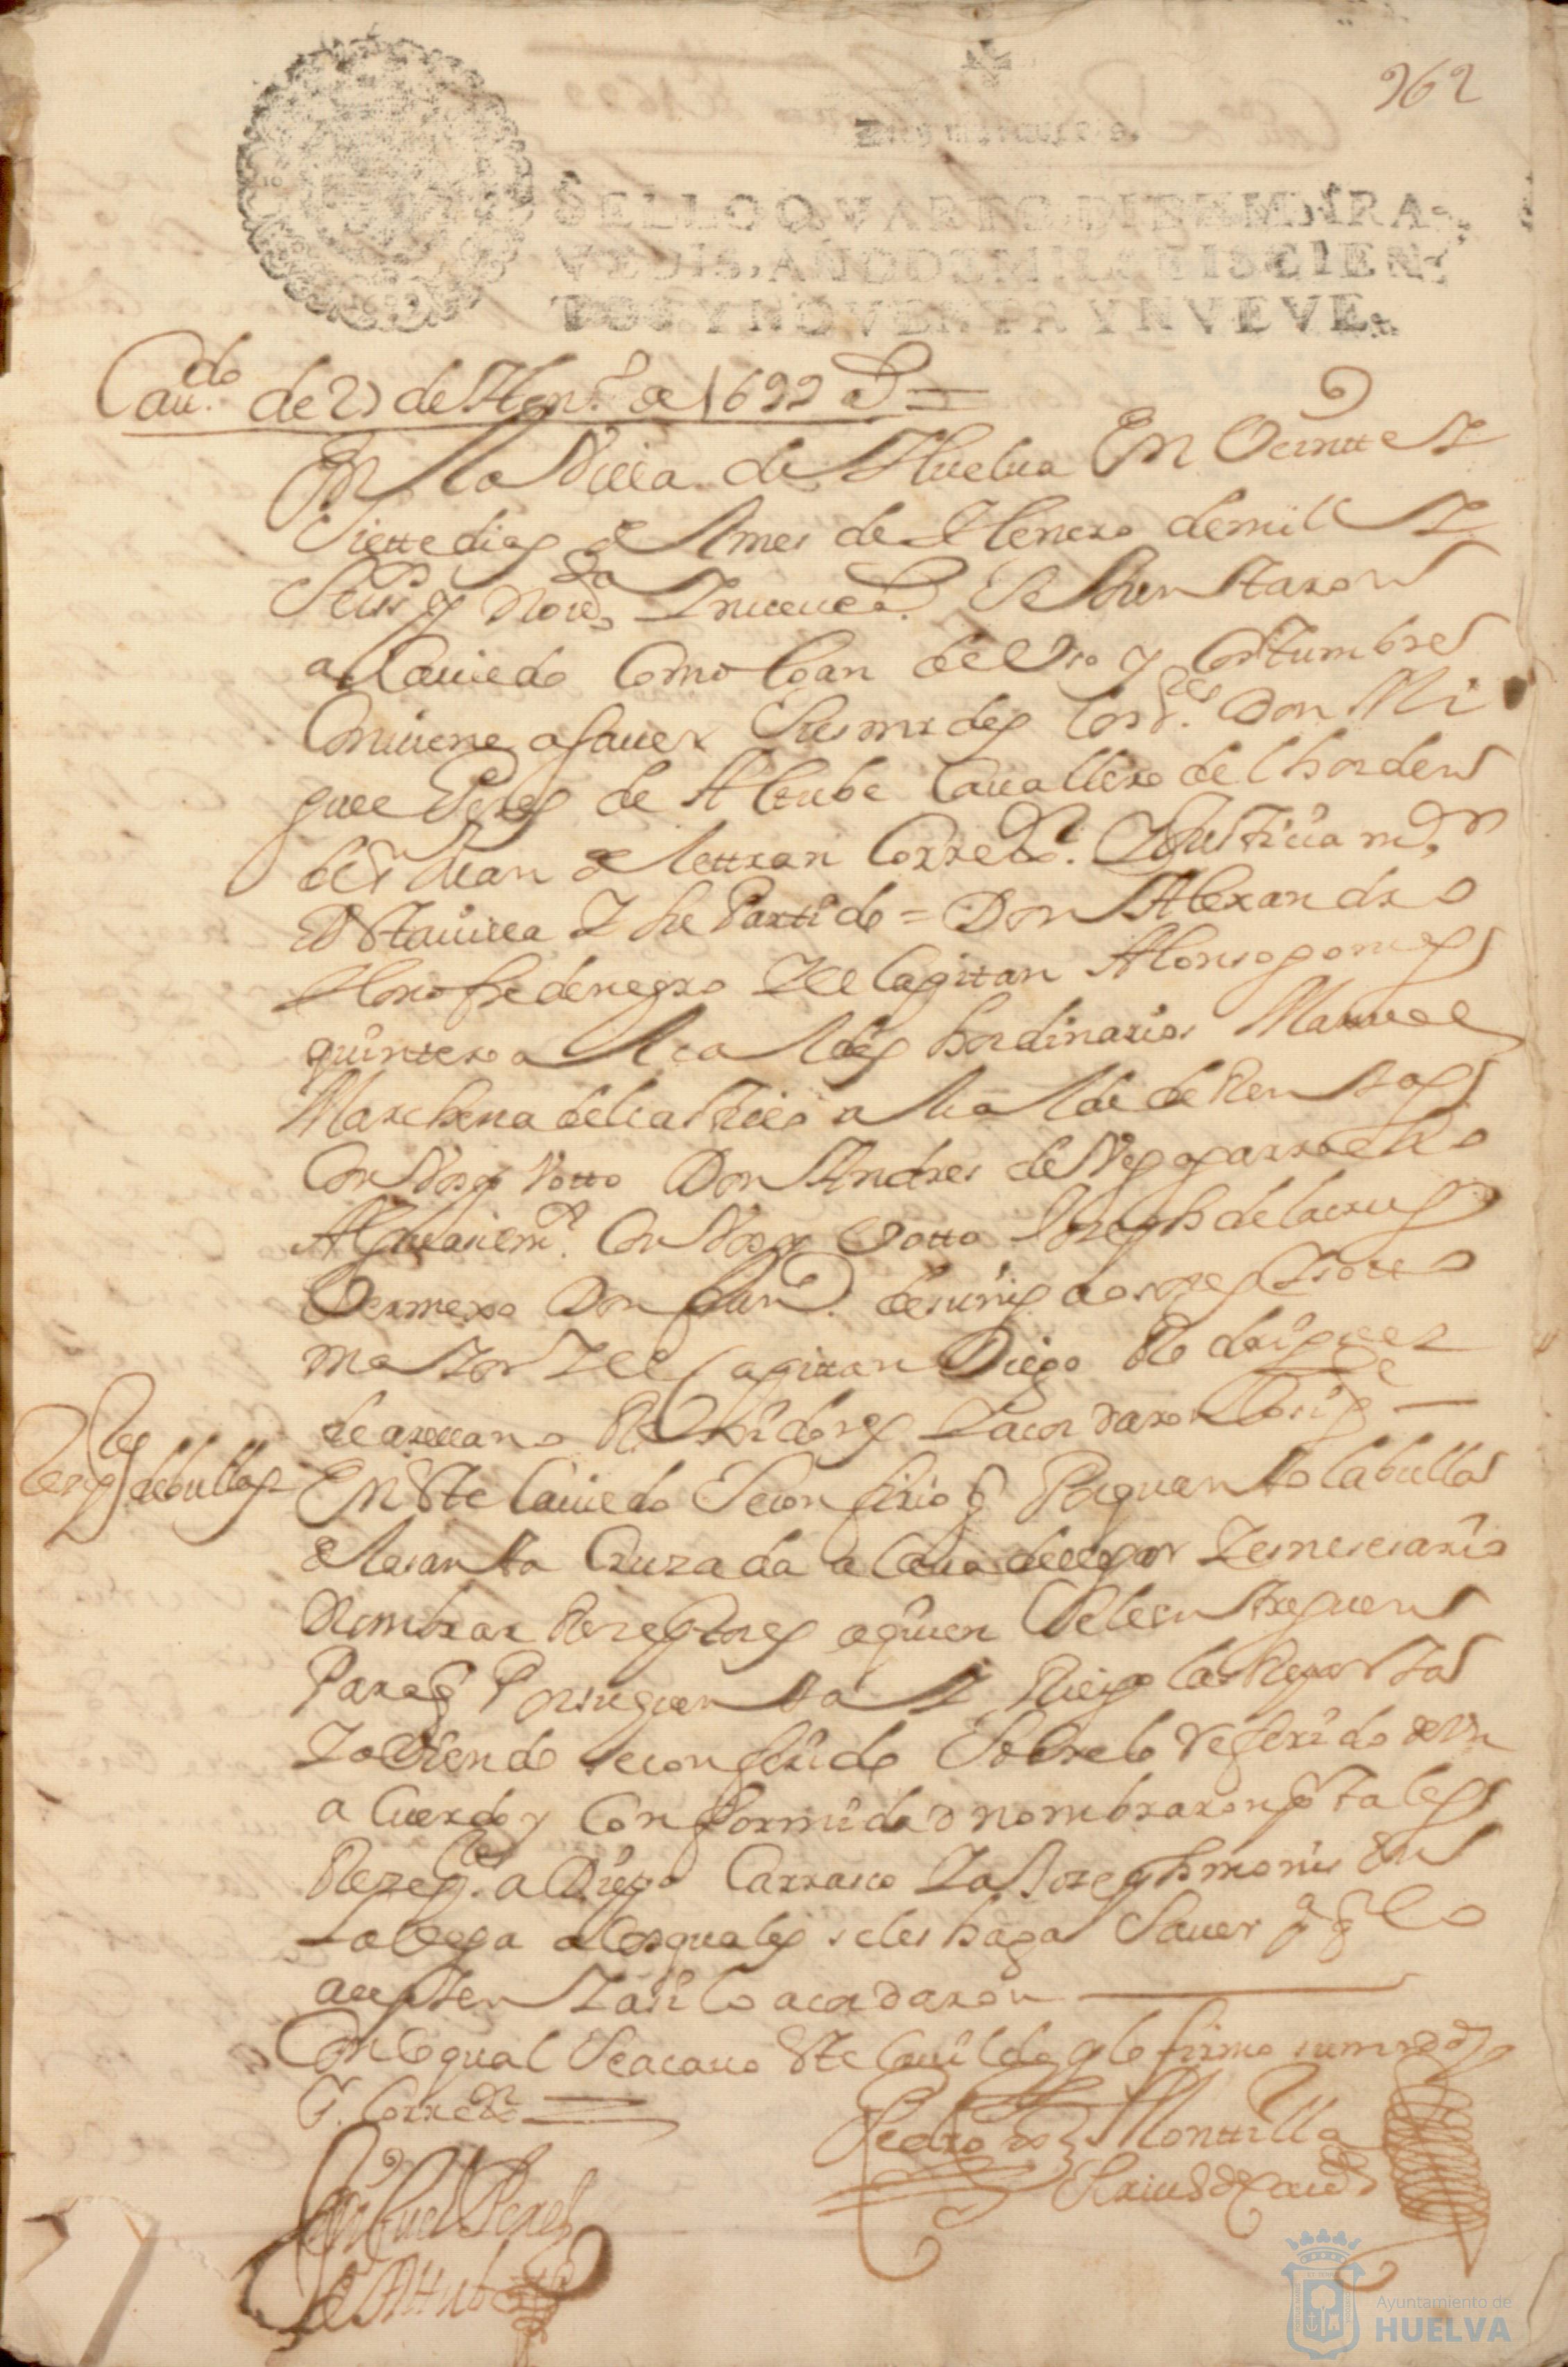 962
SELLO QVARTO, DIEZ MARA-
VEDIS, AÑO DE MIL Y SEISCIEN-
TOS Y NOVENTA Y NVEVE.
Cau.do de 27 de Hen.o de 1699 a.s =
En la Villa de Huelua En Veintte y
Siette dias de el mes de Henero de mil y
Seis.s y nov.ta y nueue a.s Se Juntaron
a Cauildo Como lo an de Uso y Costumbre
Conuiene a sauer Sus mrdes los S.res Don Mi
guel Peres de Altube Cauallero del horden
de S Juan de lettran Corre.or y Justicia m.or
de Esta uilla y su Partido = Don Alexandro
Honofre de negro y el Capittan Alonso gomes
quintero Alcaldes hordinarios Manuel
Marchena del castillo Alcalde de Rentas
Con Vos y Votto Don Andres de Vega garrocho
Alguasil m.or Con Vos y Votto Joseph de la crus
Vermexo Don fern.do de suñiga
ma yor y el Capittan Diego Rodrigues
de arellano Rexidores y acordaron lo sig.te
Rezep.res de bullas
En Este Cauildo Se confirio q Por quanto la bullas
de la santa Cruzada a Caua de llegar y es nesesario
Nombrar Rezeptores a quien Se le entreguen
Para q Por su quenta y Riego las Repartas
y abiendo se conferido Sobre lo referido de Un
a Cuerdo y Conformidad nombraron p.r tales
Rezep.res a Diego Carrasco y a Joseph monis de
la bega a los quales se les haga Sauer p.a q lo
acepten y asi lo acordaron
Con lo qual Se acauo Este Cauildo q lo firmo su mrd
S.r Corre.or =
Miguel Perez
de Alttube
Pedro Monttilla
Scriu.o de Cau.do
Ayuntamiento de
HUELVA